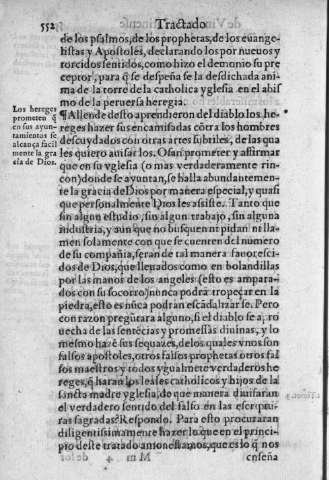 552
Tractado
de los psalmos, de los prophetas, de los euange-
listas y Apostoles, declarando los por nueuos y
torcidos sentidos, como hizo el demonio su pre
ceptor, para q̃ se despeña se la desdichada ani-
ma de la torre de la catholica yglesia en el abis
mo de la peruersa heregia.
Los hereges
prometen q̃
en sus ayun-
tamientos se
alcança facil
mente la gra
cia de Dios.
¶ Allende desto aprendieron del diablo los he-
reges hazer sus encamisadas cõtra los hombres
descuydados con otras artes subtiles, de las qua
les quiero auisar los. Osan prometer y affirmar
que en su yglesia (o mas verdaderamente rin-
con) donde se ayuntan, se halla abundantemen-
te la gracia de Dios por manera especial, y quasi
que personalmente Dios les assiste. Tanto que
sin algun estudio, sin algun trabajo, sin alguna
industria, y aun que no busquen ni pidan ni lla-
men solamente con que se cuenten del numero
de su compañia, seran de tal manera fauoresci-
dos de Dios, que lleuados como en bolandillas
por las manos de los angeles (esto es ampara-
dos con su socorro) nunca podrã tropeçar en la
piedra, esto es nunca podrã escãdalizar se. Pero
con razon pregũtara alguno, si el diablo se apro
uecha de las sentẽcias y promessas diuinas, y lo
mesmo hazẽ sus sequazes, de los quales vnos son
falsos apostoles, otros falsos prophetas otros fal
sos maestros y todos ygualmẽte verdaderos he
reges, q̃ haran los leales catholicos y hijos de la
sancta madre yglesia, de que manera diuisaran
el verdadero sentido del falso en las escriptu-
ras sagradas? Respondo. Para esto procuraran
diligentissimamente hazer lo que en el princi-
pio deste tratado amonestamos, que es lo q̃ nos
Mm 4
enseña